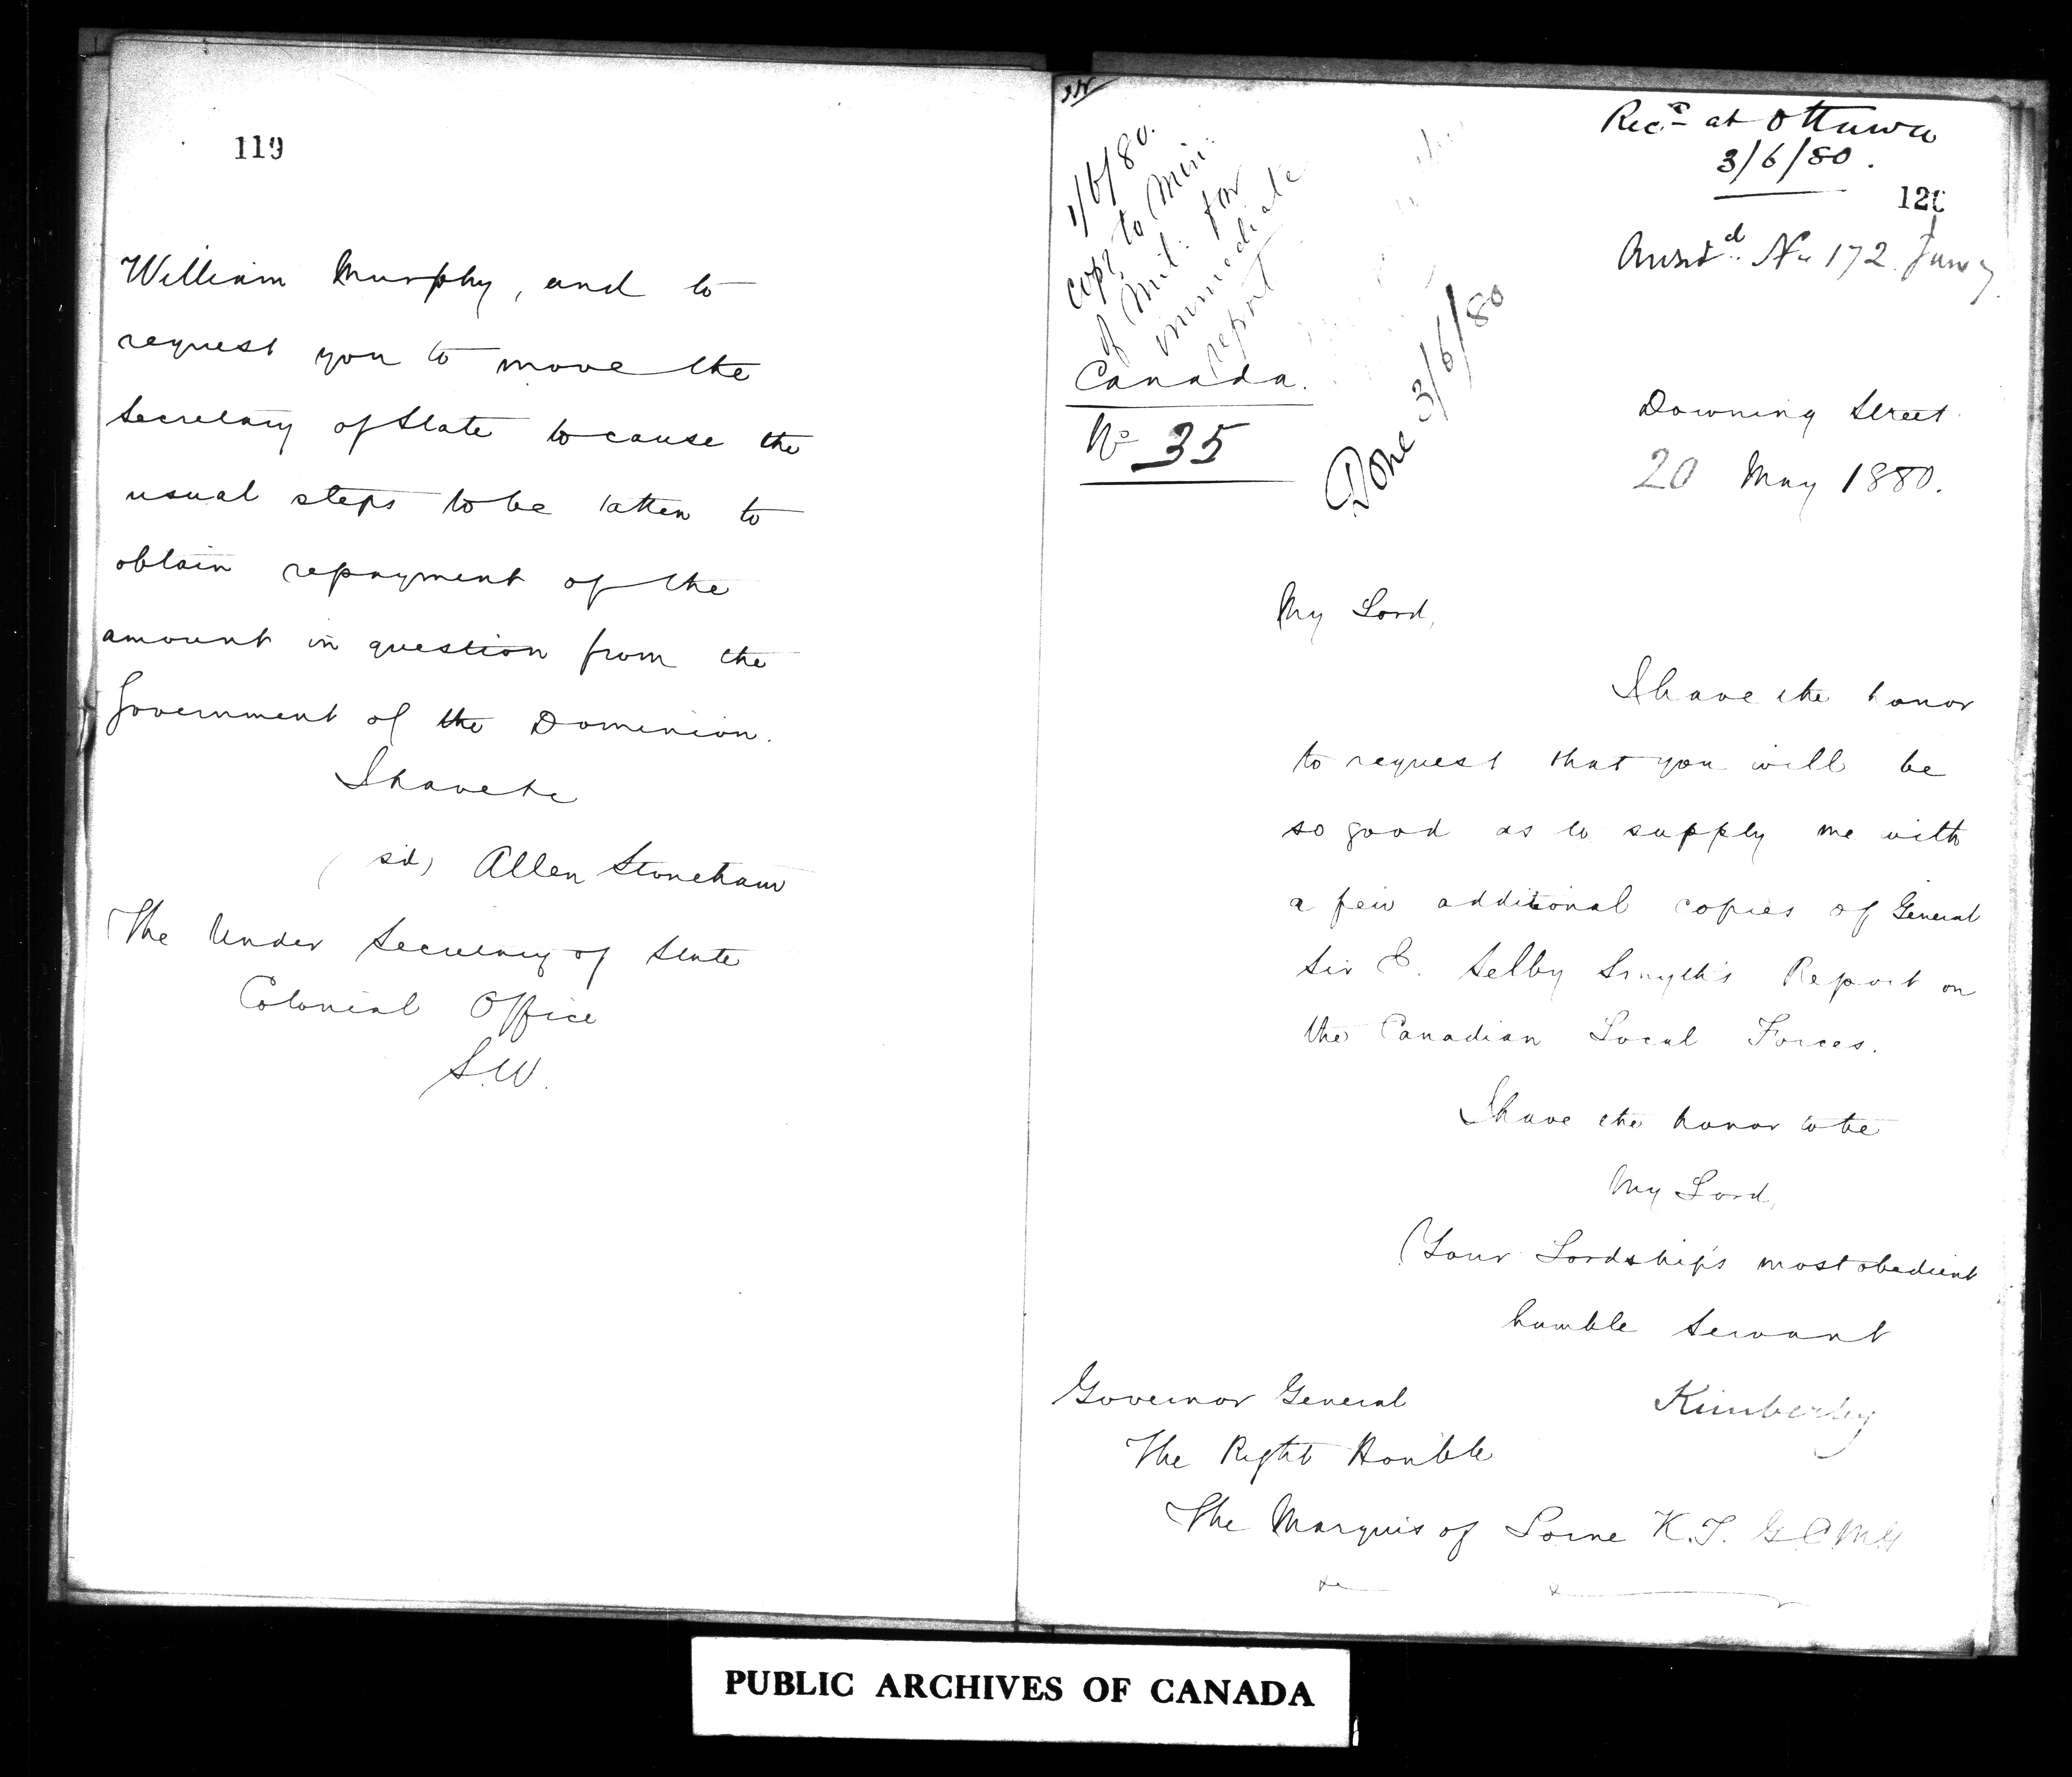 119
William Murphy, and to
request you to move the
Secretary of State to cause the
usual steps to be taken to
obtain repayment of the
amount in question from the
Government of the Dominion.
I have &c
(sd) Allen Stoneham
The Under Secretary of State
Colonial Office
S.W.
Recd at Ottawa
3/6/80.
120
Answd. No 172 June 7
1/6/80.
Copy to Min:
of Mil: for
immediate
report
Canada.
No 35
Done 3/6/80
Downing Street
20 May 1880.
My Lord,
I have the honor
to request that you will be
so good as to supply me with
a few additional copies of General
Sir E. Selby Smyth's Report on
the Canadian Local Forces.
I have the honor to be
My Lord,
Your Lordship's most obedient
humble Servant
Kimberley
Governor General
The Right Honble
The Marquis of Lorne K.T. G.C.M.G
&c &c
PUBLIC ARCHIVES OF CANADA